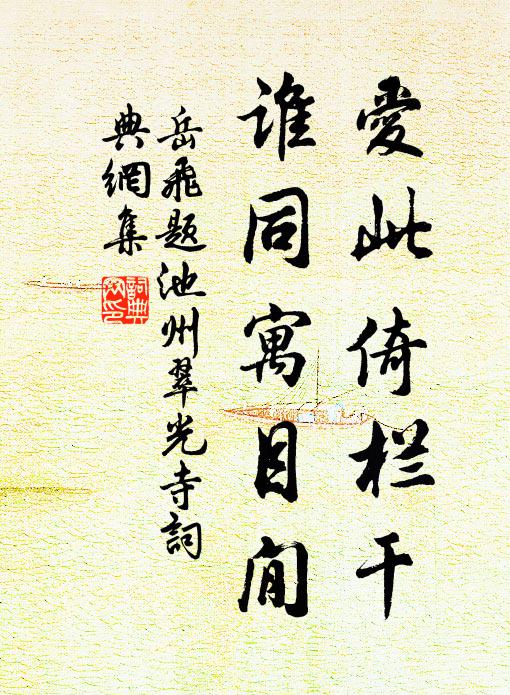 愛此倚栏干
谁同寓目閒
岳飛题池州翠光寺詞
典網集
詞典網印